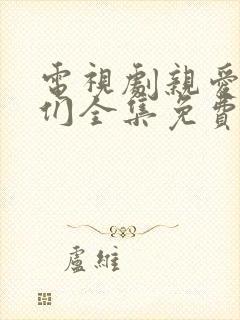 電視劇親愛
们全集免費
盧維